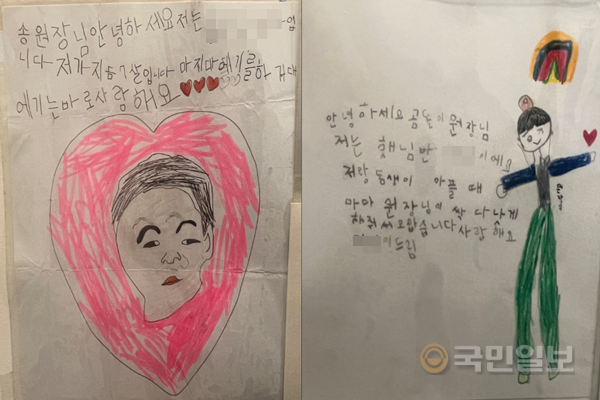 송원장님안녕하세요저는 입
니다 저가지금7살입니다 마지마에기를하 거대
에기는바로사랑해요
안녕하세요 곰돌이 원장님
저는 햇님반 이에요
저랑 동생이 아플 때
마마 원장님이 싹 다 낫게
해줘서요맙습니다사랑해요
드림
국민일보